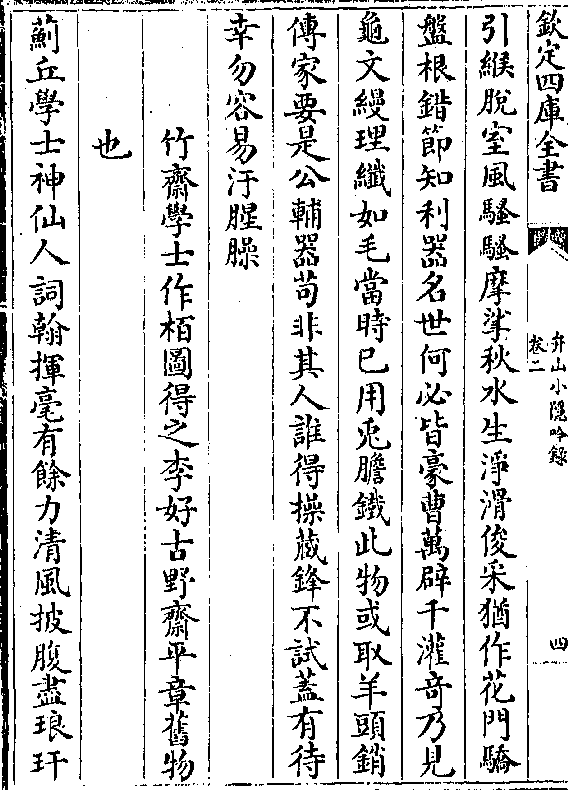 欽定四庫全書
弁山小隱吟錄
卷二
四
引緱脫室風騷騷摩挲秋水生淨滑俊采猶作花門驕
盤根錯節知利器名世何必皆豪曹萬辟千灌竒乃見
龜文縵理纖如毛當時已用兎膽鐵此物或取羊頭銷
傳家要是公輔器苟非其人誰得操蔵鋒不試蓋有待
幸勿容易汙腥臊
竹齋學士作栢圖得之李好古野齋平章舊物
也
薊丘學士神仙人詞翰揮毫有餘力清風披腹盡琅玕